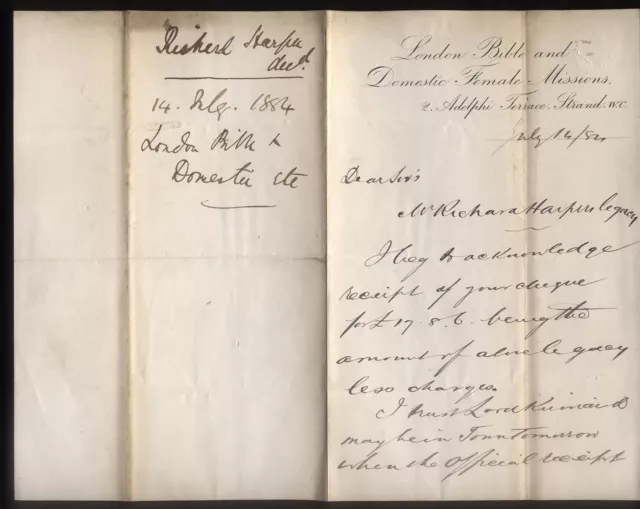 Richard Harper
decd.
14. July. 1884
London Bible &
Domestic etc
London Bible and
Domestic Female Missions,
2, Adelphi Terrace, Strand, W.C.
July 14/84
Dear Sirs
Mr Richard Harpers legacy
I beg to acknowledge
receipt of your cheque
for £17.8.6. being the
amount of above legacy
less charges.
I trust Lord Kinnaird
may be in Town tomorrow
when the official receipt